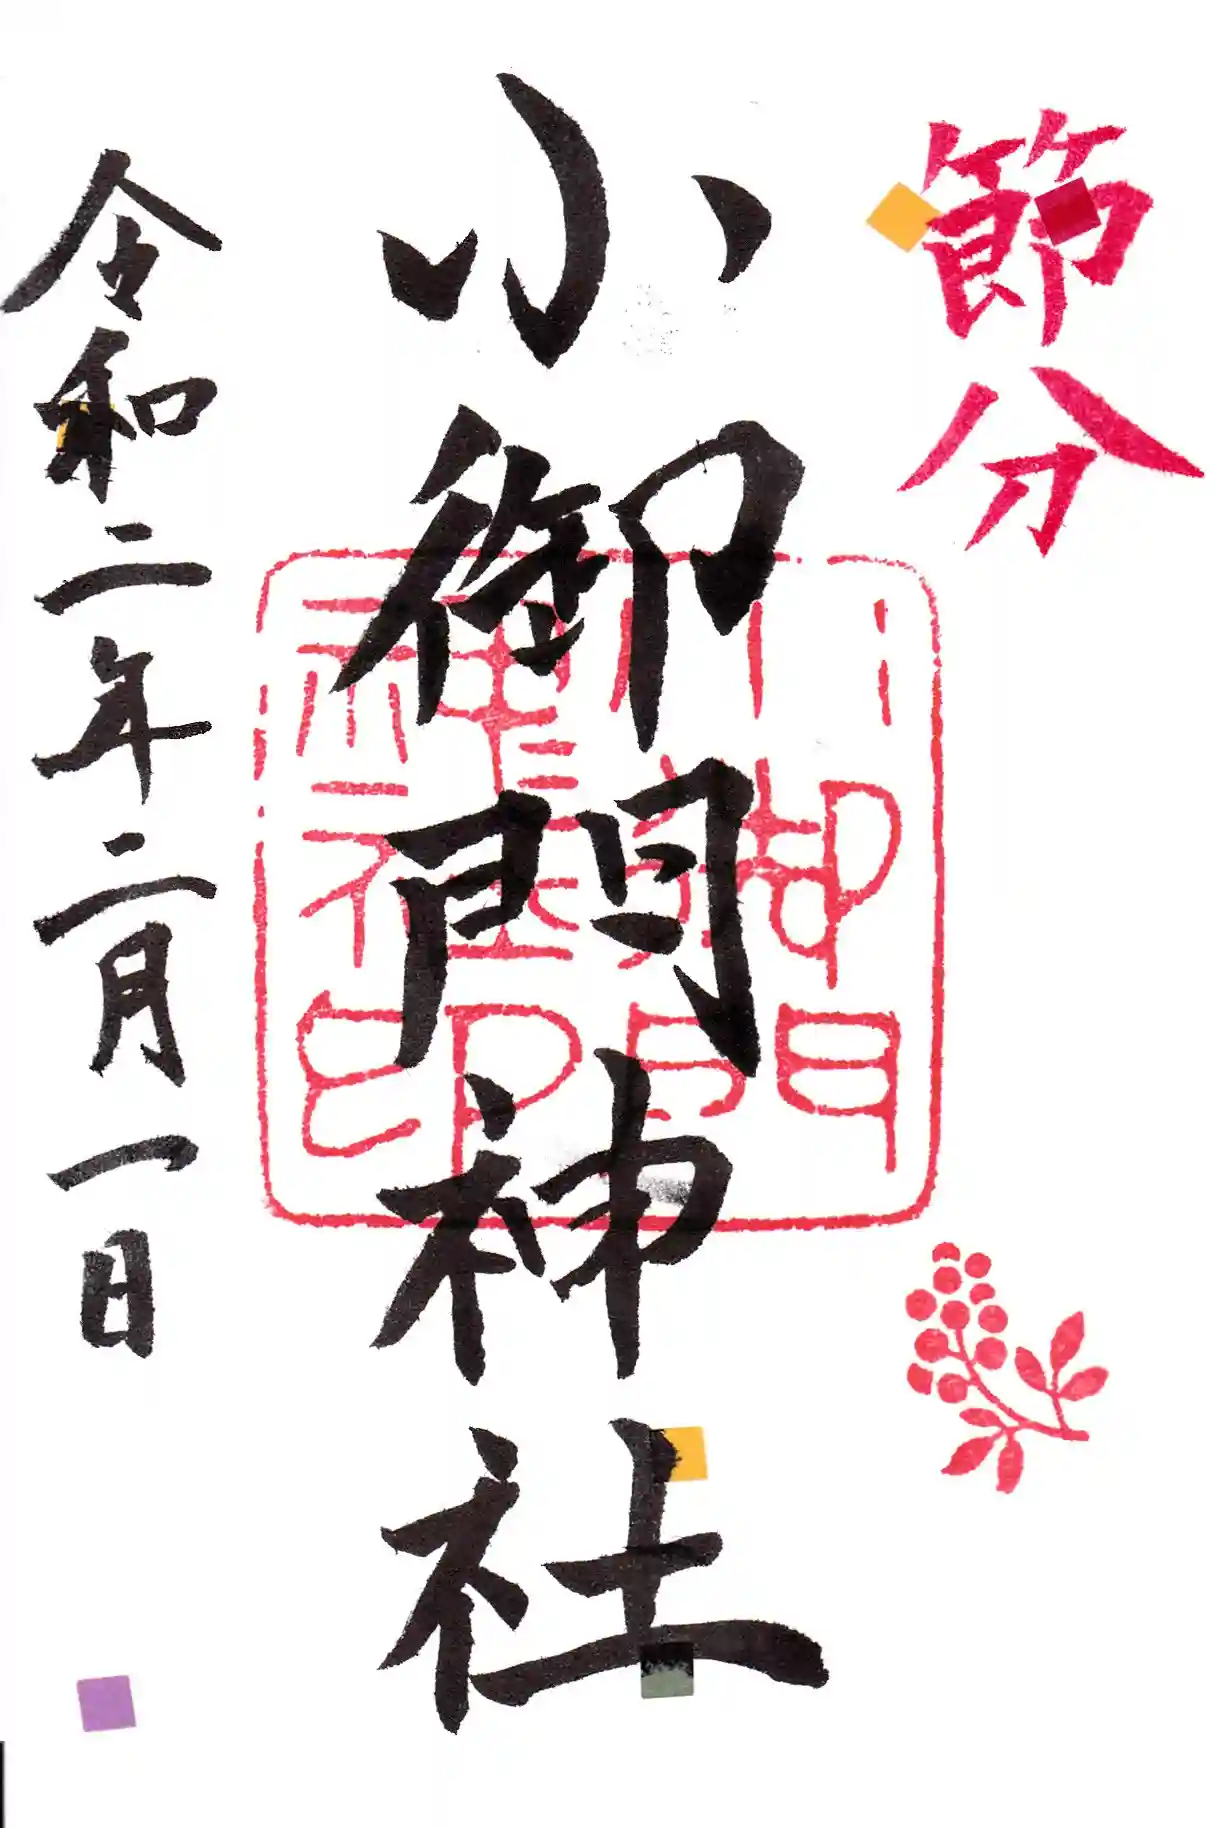 節分
小御門神社
小御門神社印
令和二年二月一日